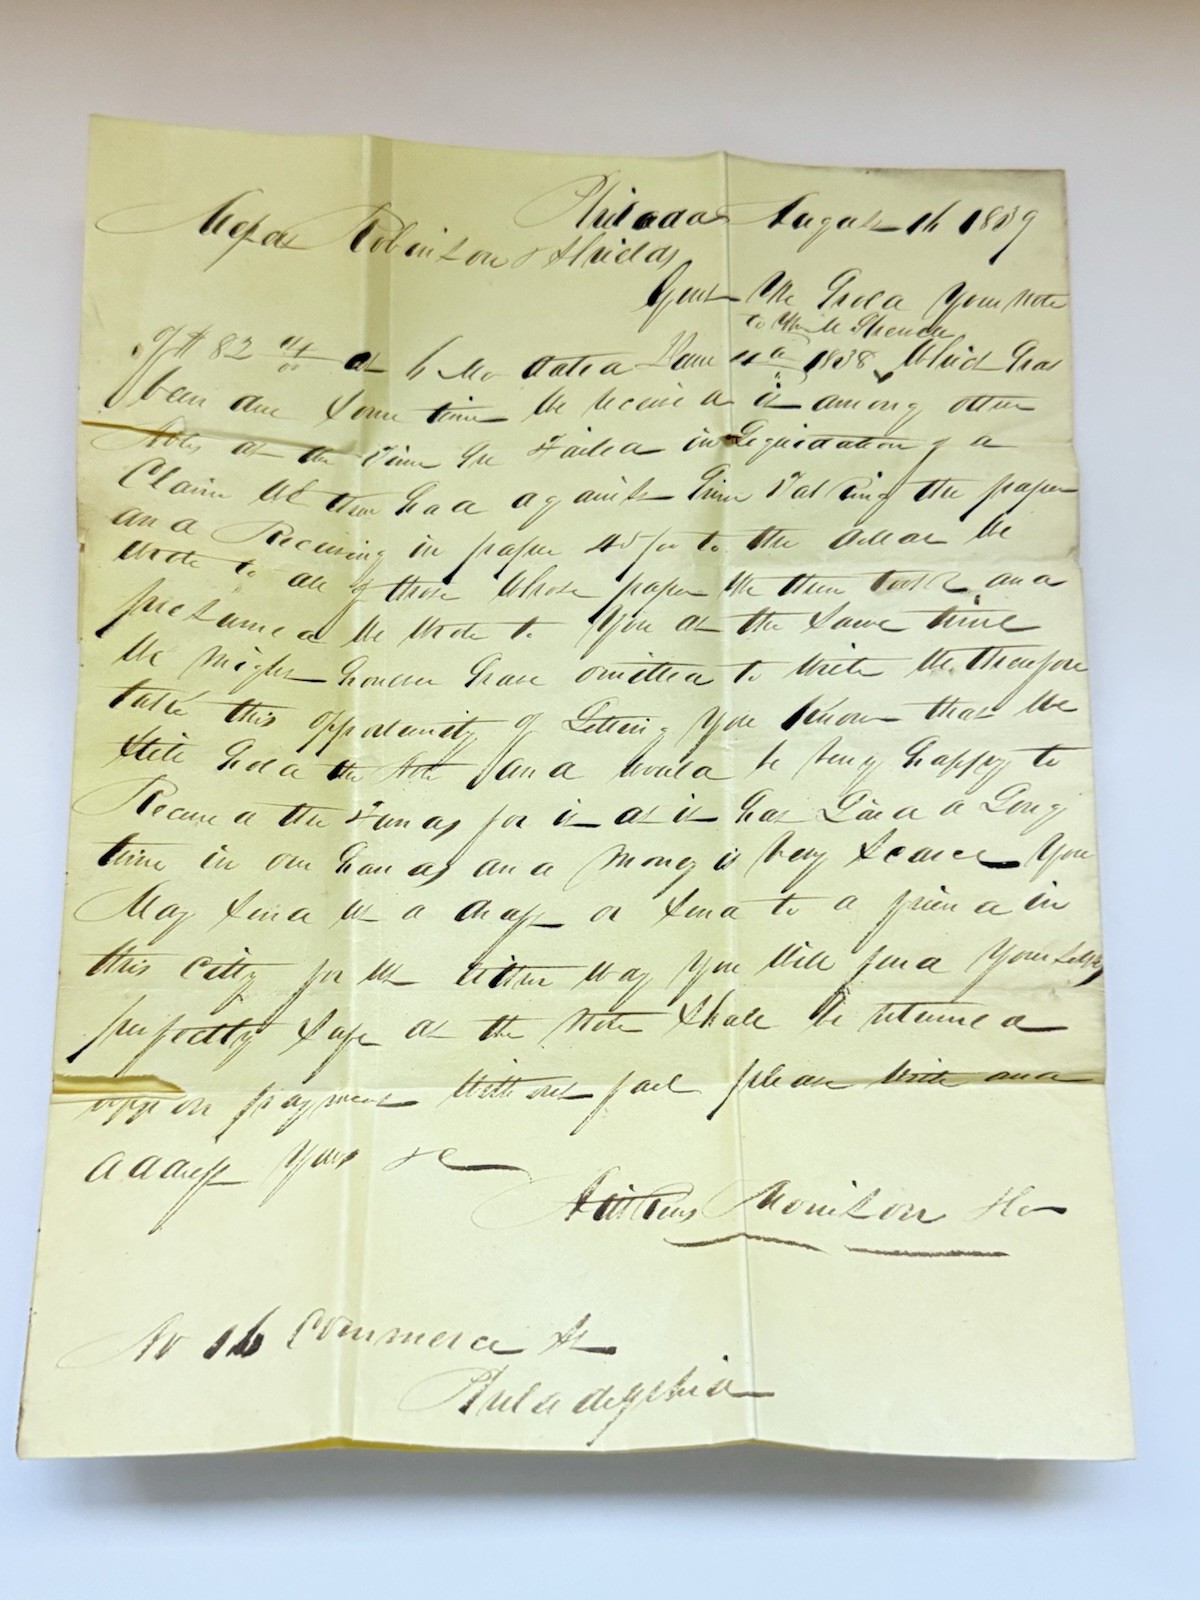 Philada August 16 1839
Messrs Robinson & Shields
Gent We Hold Your Note
to Wm M
of $ 82 at 6 Mo dated June 1838 Which has
been due Some time We received it among other
Notes at the Time He Failed in Liquidation of a
Claim We then had against him Talking the paper
and Receiving in paper to the dollar We
Wrote to all of those Whose paper We then took and
presumed We Wrote to You at the Same time
We might however have omitted to Write We therefore
take this opportunity of Letting You Know that We
Still Hold the Note and Would be very happy to
Received the Funds for it as it has Laid a Long
time in our hands and Money is very Scarce You
May Send us a draft or Send to a friend in
this City for us Either Way You Will find Yourselves
perfectly Safe as the Note Shall be returned
uppon payment Without fail please Write and
address Yours &c
Morrison & Co
No 16 Commerce St
Philadelphia